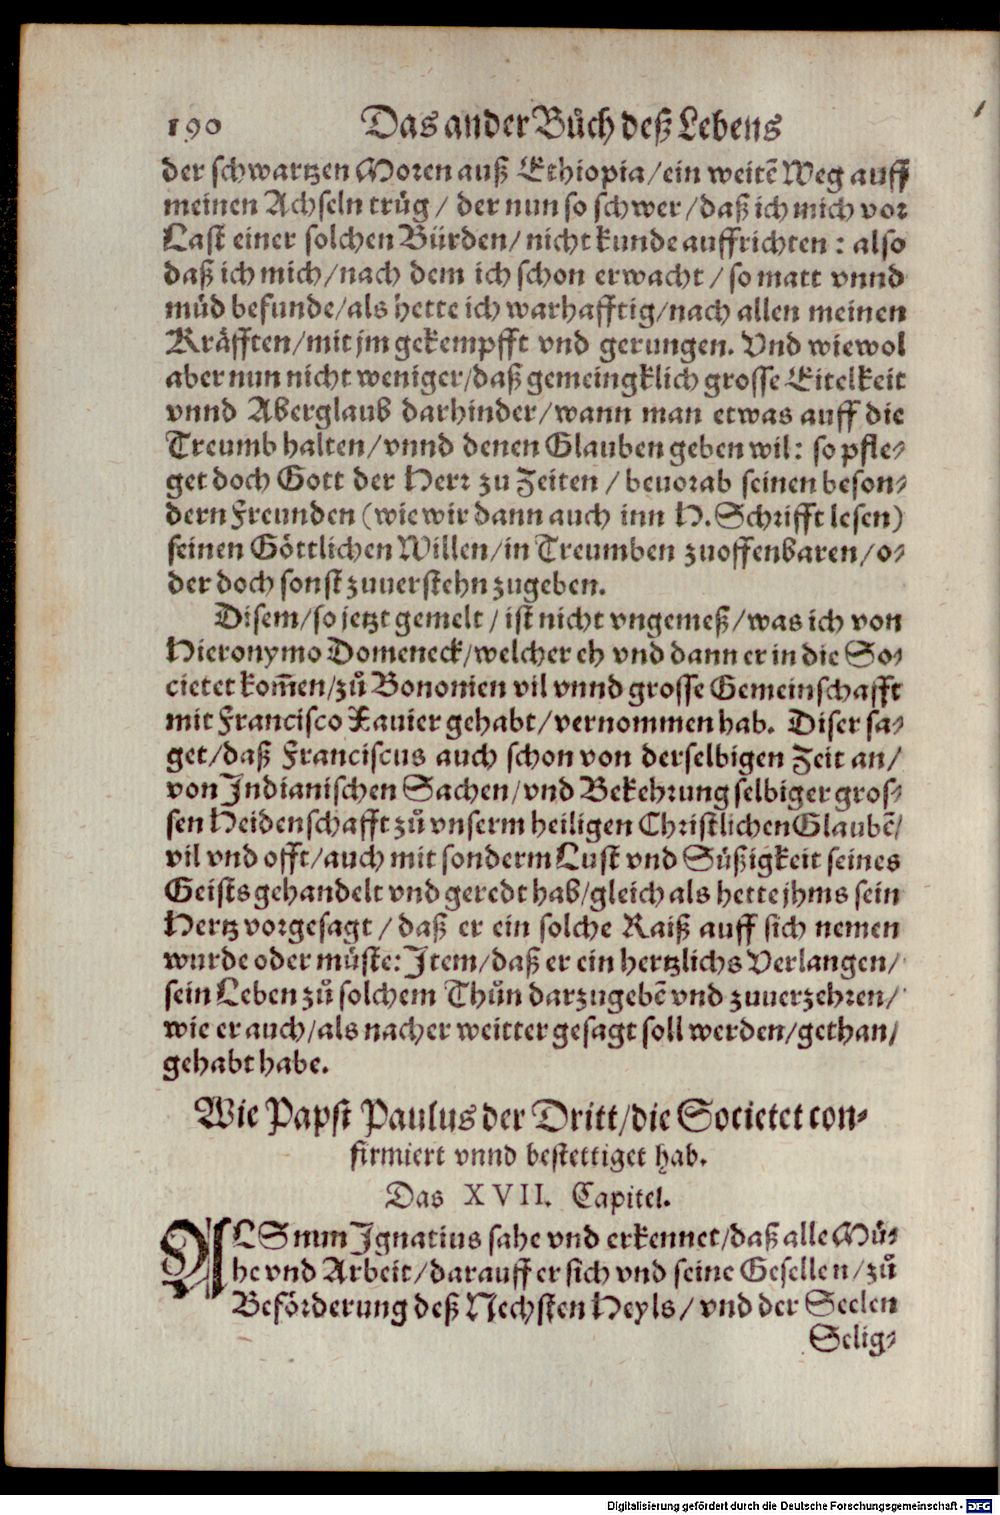 190 Das ander Bůch deß Lebens
der schwartzen Moren auß Ethiopia/ein weitẽ Weg auff
meinen Achseln trůg / der nun so schwer/daß ich mich vor
Last einer solchen Bürden/ nicht kunde auffrichten : also
daß ich mich/nach dem ich schon erwacht / so matt vnnd
müd befunde/als hette ich warhafftig/nach allen meinen
Kräfften/mit jm gekempfft vnd gerungen. Vnd wiewol
aber nun nicht weniger/daß gemeingklich grosse Eitelkeit
vnnd Aberglaub darhinder/wann man etwas auff die
Treumb halten/vnnd denen Glauben geben wil: so pfle-
get doch Gott der Herr zu Zeiten / beuorab seinen beson-
dern Freunden (wie wir dann auch inn H. Schrifft lesen)
seinen Göttlichen Willen/in Treumben zuoffenbaren/o-
der doch sonst zuuerstehn zugeben.
Disem/so jetzt gemelt / ist nicht vngemeß/was ich von
Hieronymo Domeneck/welcher eh vnd dann er in die So-
cietet kom̃en/zů Bononien vil vnnd grosse Gemeinschafft
mit Francisco Xauier gehabt/vernommen hab. Diser sa-
get/daß Franciscus auch schon von derselbigen Zeit an/
von Indianischen Sachen/vnd Bekehrung selbiger gros-
sen Heidenschafft zů vnserm heiligen Christlichen Glaubẽ/
vil vnd offt/auch mit sonderm Lust vnd Süßigkeit seines
Geists gehandelt vnd geredt hab/gleich als hette jhms sein
Hertz vorgesagt / daß er ein solche Raiß auff sich nemen
wurde oder müste: Item/daß er ein hertzlichs Verlangen/
sein Leben zů solchem Thůn darzugebẽ vnd zuuerzehren/
wie er auch/als nacher weitter gesagt soll werden/gethan/
gehabt habe.
Wie Papst Paulus der Dritt/die Societet con-
firmiert vnnd bestettiget hab.
Das XVII. Capitel.
ALS nun Ignatius sahe vnd erkennet/daß alle Mü-
he vnd Arbeit/darauff er sich vnd seine Gesellen/zů
Beförderung deß Nechsten Heyls/ vnd der Seelen
Selig-
Digitalisierung gefördert durch die Deutsche Forschungsgemeinschaft - DFG